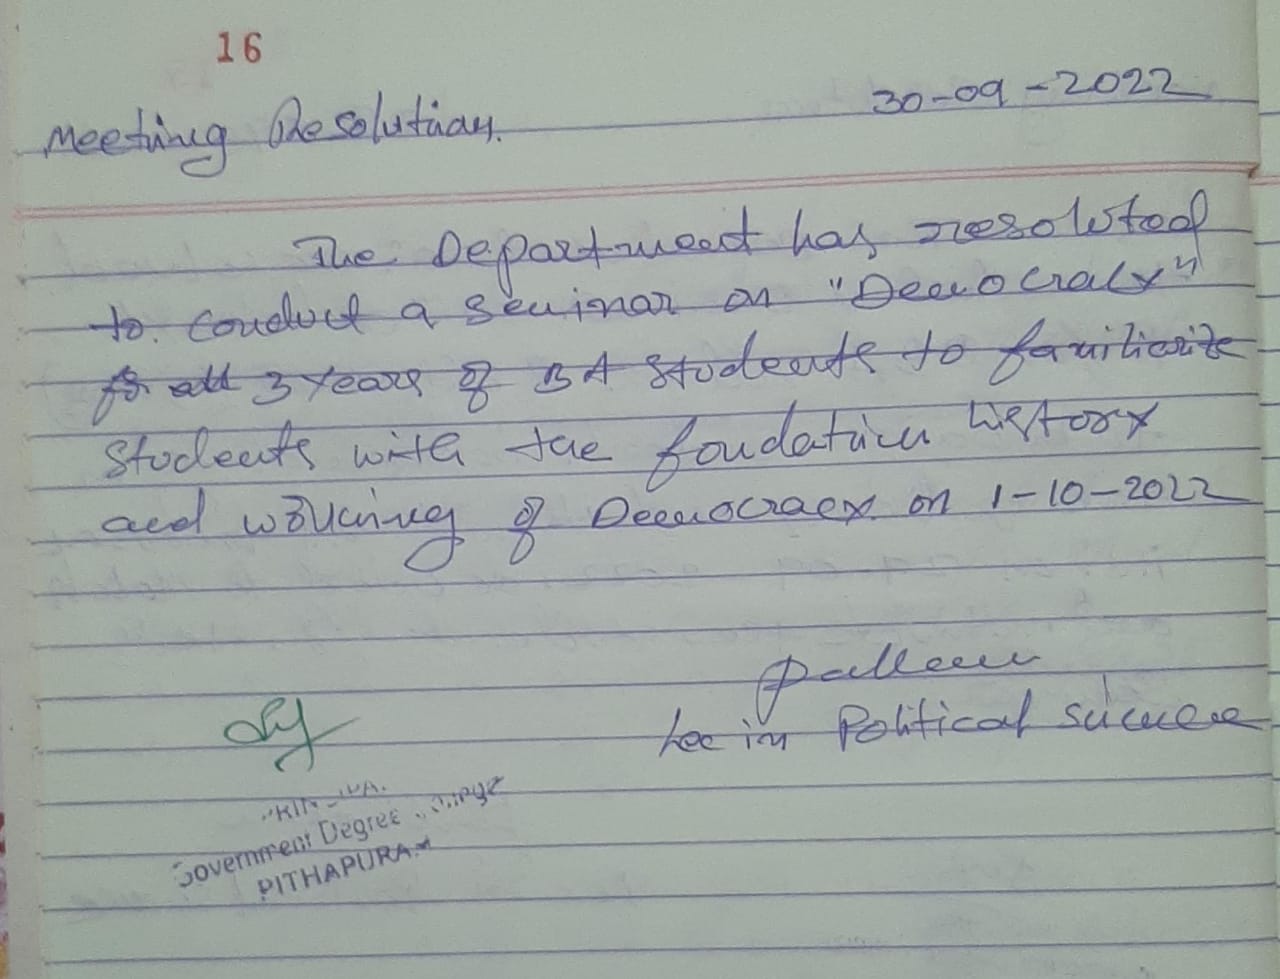 16
30-09-2022
Meeting Resolution.
The Department has resoluted
to conduct a seminar on "Democracy"
for all 3 years of BA students to familiarize
students with the foudation history
and working of Democracy on 1-10-2022
Lec in Political science
Government Degree
PITHAPURAM